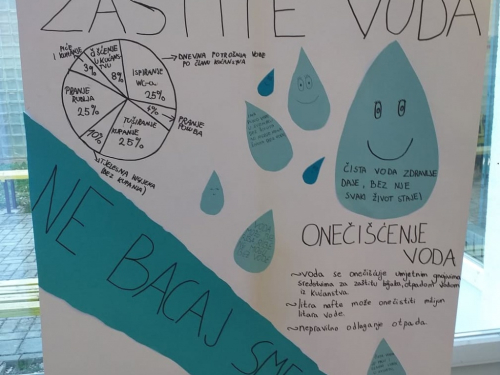 ZAŠTITE VODA
PIĆE
I KUHANJE
3%
ČIŠĆENJE
U KUĆAN-
STVU
8%
ISPIRANJE
WC-a
25%
DNEVNA POTROŠNJA VODE
PO ČLANU KUĆANSTVA
PRANJE
RUBLJA
25%
4%
PRANJE
POSUĐA
TUŠIRANJE
KUPANJE
25%
10%
TJELESNA
(BEZ KUPANJA)
ČISTA VODA ZDRAVLJE
DAJE, BEZ NJE
SVAKI ŽIVOT STAJE!
NE BACAJ SME
ONEČIŠĆENJE
VODA
~voda se onečišćuje umjetnim gnojivima
sredstvima za zaštitu bilja, otpadnom vodom
iz kućanstva.
~litra nafte može onečistiti milijun
litara vode.
~nepravilno odlaganje otpada